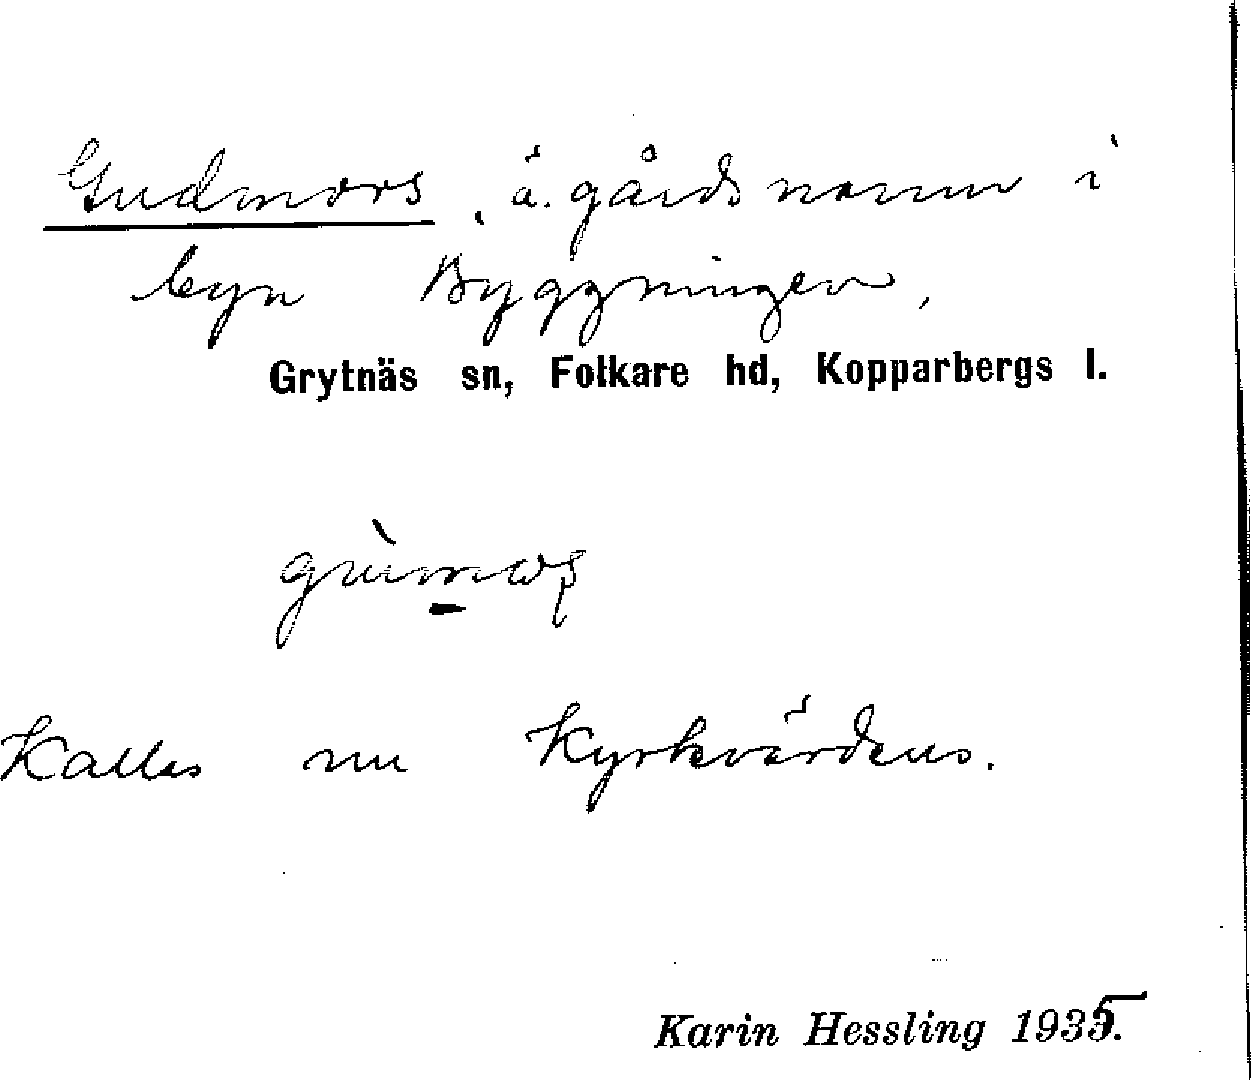 Gudmors, ä. gårdsnamn i
byn Byggningen,
Grytnäs sn, Folkare hd, Kopparbergs l.
Kallas nu Kyrkvärdens.
Karin Hessling 1935.